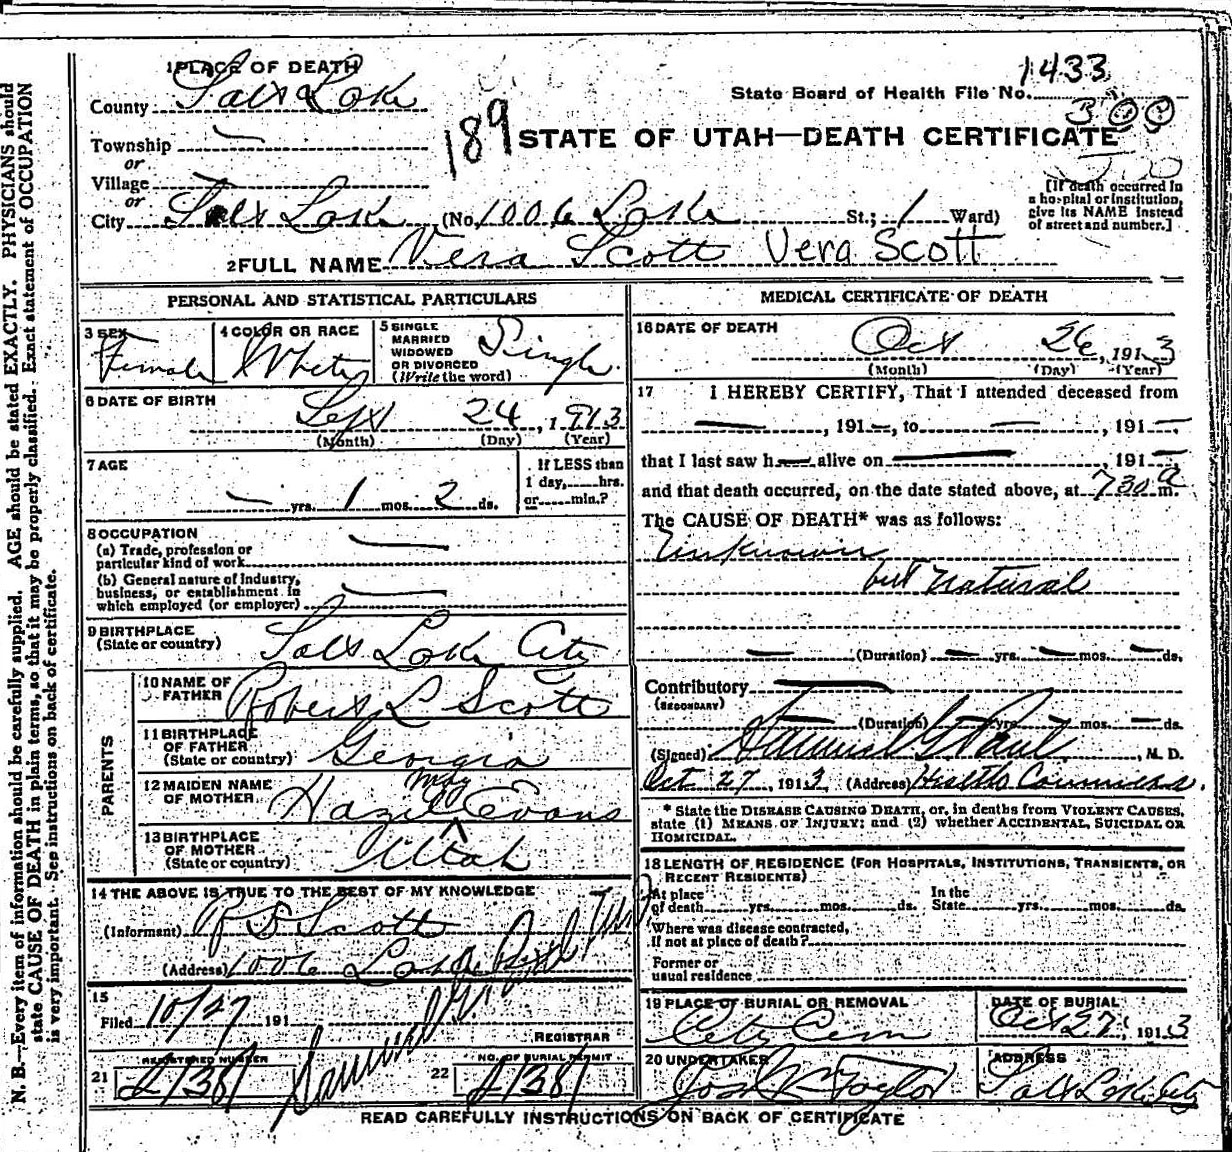 1 PLACE OF DEATH
County Salt Lake
Township —
or
Village
or
City Salt Lake (No. 1006 Lake St.; 1 Ward)
1433
State Board of Health File No.
300
189 STATE OF UTAH—DEATH CERTIFICATE
[If death occurred in
a hospital or institution,
give its NAME instead
of street and number.]
2 FULL NAME Vera Scott Vera Scott
PERSONAL AND STATISTICAL PARTICULARS
3 SEX Female
4 COLOR OR RACE White
5 SINGLE
MARRIED
WIDOWED
OR DIVORCED
(Write the word) Single
6 DATE OF BIRTH
Sept 24, 1913
(Month) (Day) (Year)
7 AGE
— yrs. 1 mos. 2 ds.
If LESS than
1 day, hrs.
or min.?
8 OCCUPATION
(a) Trade, profession or
particular kind of work —
(b) General nature of industry,
business, or establishment in
which employed (or employer) —
9 BIRTHPLACE
(State or country) Salt Lake City
PARENTS
10 NAME OF
FATHER Robert L Scott
11 BIRTHPLACE
OF FATHER
(State or country) Georgia
12 MAIDEN NAME
OF MOTHER Hazel May Evans
13 BIRTHPLACE
OF MOTHER
(State or country) Utah
14 THE ABOVE IS TRUE TO THE BEST OF MY KNOWLEDGE
(Informant) Scott
(Address) 1006 Lake
15
Filed 10/27 191
REGISTRAR
21 REGISTERED NUMBER 1381
22 NO. OF BURIAL PERMIT 1381
MEDICAL CERTIFICATE OF DEATH
16 DATE OF DEATH
Oct 26, 1913
(Month) (Day) (Year)
17 I HEREBY CERTIFY, That I attended deceased from
—, 191—, to —, 191—
that I last saw h— alive on — 191—
and that death occurred, on the date stated above, at 7 30 a m.
The CAUSE OF DEATH* was as follows:
Unknown
but natural
— (Duration) — yrs. — mos. — ds.
Contributory —
(SECONDARY)
— (Duration) — yrs. — mos. — ds.
(Signed) Samuel G Paul, M. D.
Oct 27, 1913 (Address) Health
* State the DISEASE CAUSING DEATH, or, in deaths from VIOLENT CAUSES,
state (1) MEANS OF INJURY; and (2) whether ACCIDENTAL, SUICIDAL OR
HOMICIDAL.
18 LENGTH OF RESIDENCE (FOR HOSPITALS, INSTITUTIONS, TRANSIENTS, OR
RECENT RESIDENTS)
At place
of death yrs. mos. ds.
In the
State yrs. mos. ds.
Where was disease contracted,
if not at place of death?
Former or
usual residence
19 PLACE OF BURIAL OR REMOVAL
City Cem
DATE OF BURIAL
Oct 27, 1913
20 UNDERTAKER
Taylor
ADDRESS
Salt Lake City
READ CAREFULLY INSTRUCTIONS ON BACK OF CERTIFICATE
N. B.—Every item of information should be carefully supplied. AGE should be stated EXACTLY. PHYSICIANS should
state CAUSE OF DEATH in plain terms, so that it may be properly classified. Exact statement of OCCUPATION
is very important. See instructions on back of certificate.